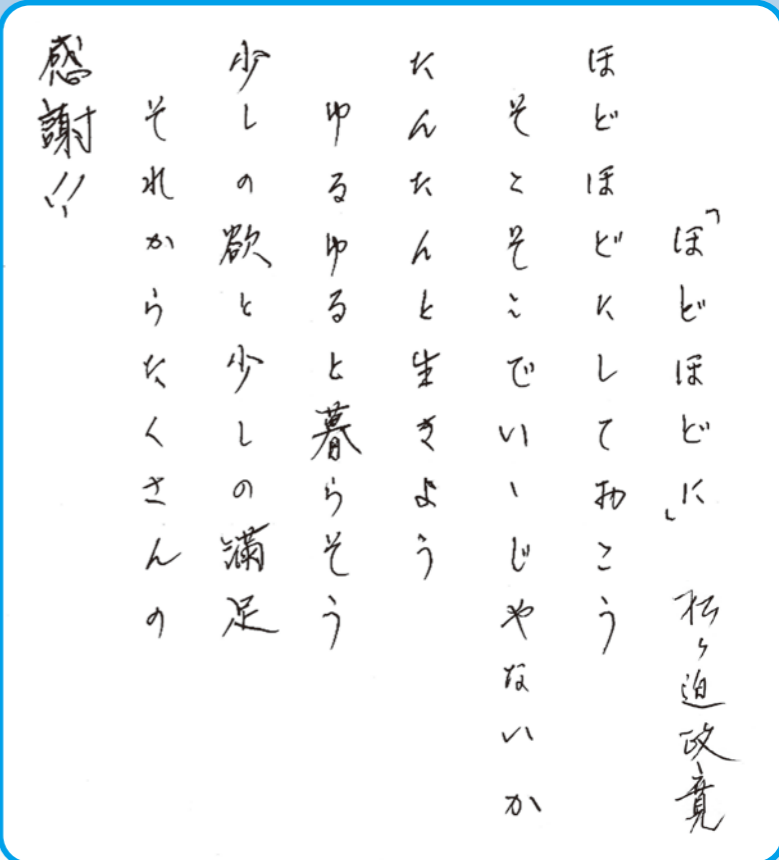 「ほどほどに」 松ヶ迫政寛
ほどほどにしておこう
そこそこでいいじゃないか
たんたんと生きよう
ゆるゆると暮らそう
少しの欲と少しの満足
それからたくさんの
感謝!!